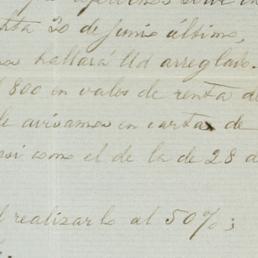 20 de junio último,
hallará Ud arreglado.
800 en vales de renta de
le avisamos en carta de
asi como el de la de 28 d
realizarlo al 50%;